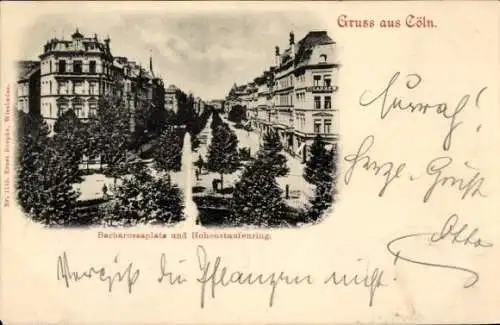 Gruss aus Cöln.
Hurrah!
Herzl. Gruß
Otto
Barbarossaplatz und Hohenstaufenring.
Vergiß die Pflanzen nicht!
Nr. 1145. Ernst Roepke, Wiesbaden.